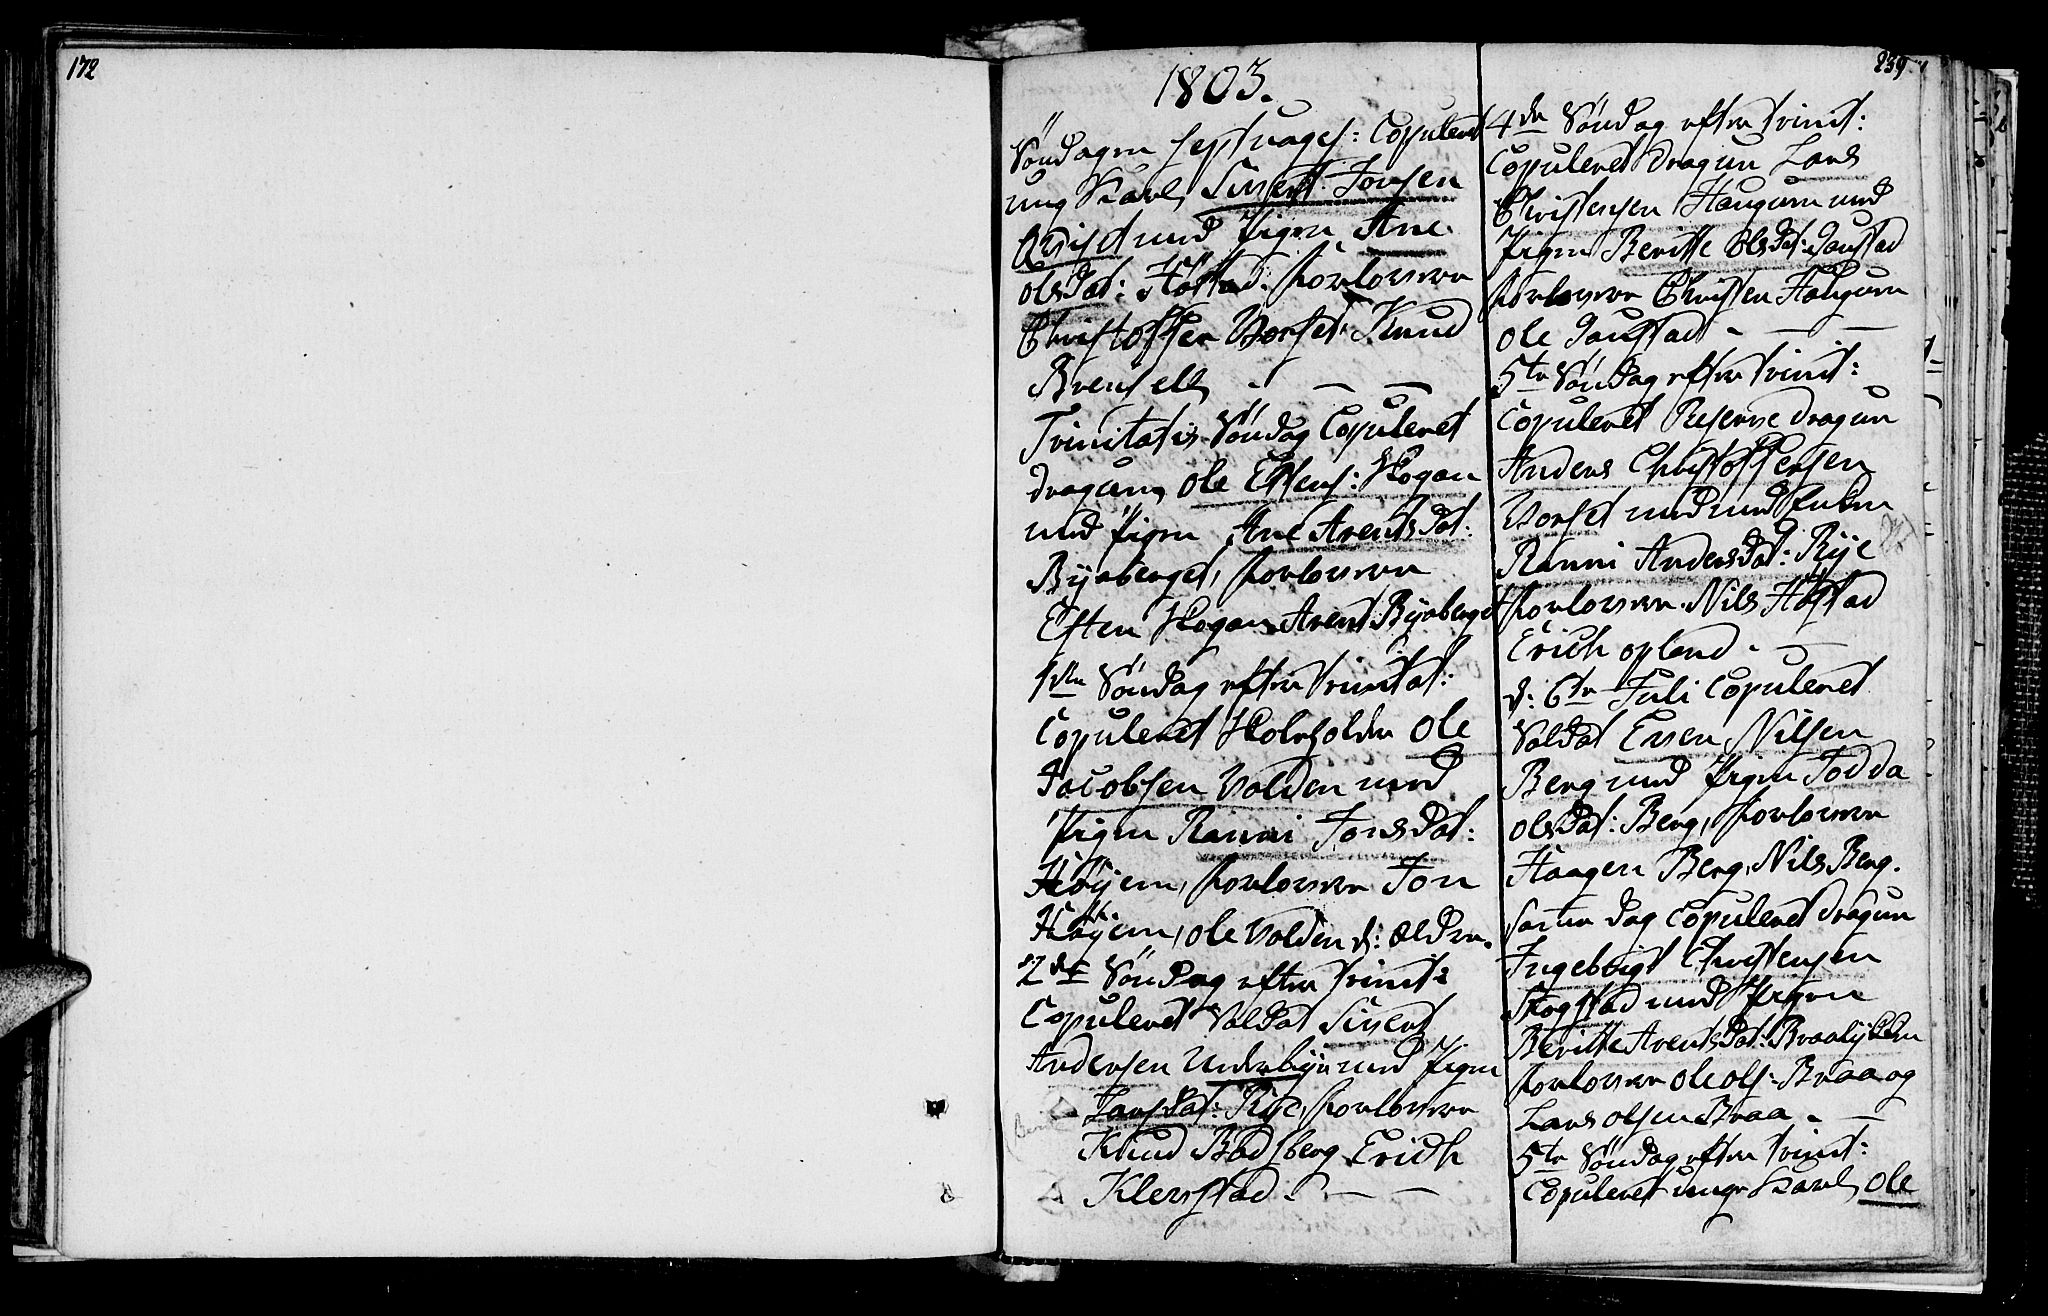 172
1803.
Söndagen septuages: Copuleret
ung Karl, Sivert Jonsen
med Pigen Ane
olsdat: Höstad. forlovere
Christoffer Vorset, Knud
Brensell, - — —
Trinitatis Söndag Copuleret
dragun, Ole Estens: Skogan
med Pigen Ane Arentsdat:
Byeberget, forlovere
Esten Skogan Arent Byeberget
1ste Söndag efter trinitat:
Copuleret Skoleholder Ole
Jacobsen Volden med
Pigen Ranni Jonsdat:
Höyem, forlovere Jon
Höyem, ole Volden d: ældre.
2den Söndag efter trinit:
Copuleret Soldat Sivert
Andersen Underbye med Pigen
Larsdat: Rye, forlovere
Knud Badsberg Erich
Klerstad. - — —
239
4de Söndag efter trinit:
Copuleret dragun Lars
Christensen Haugum med
Pigen Beritte olsdat: Saustad
forlovere Christen Haugum
ole Saustad - — —
5te Söndag efter trinit:
Copuleret Reserve dragun
Anders Christoffersen
Vorset med med Enken
Ranni Andersdat: Rye
forlovere. Nils Höstad
Erich opland - —
d: 6te Juli Copuleret
Soldat Even Nilsen
Berg med Pigen Jodda
olsdat: Berg, forlovere
Haagen Berg, Nils Berg.
samme dag Copuleret dragun
Ingebrigt Christensen
Skogstad med Pigen
Beritte Arentsdat: Braalykken
forlovere ole ols: Braa og
Lars olsen Braa - —
5te Söndag efter trinit:
Copuleret unge Karl, Ole